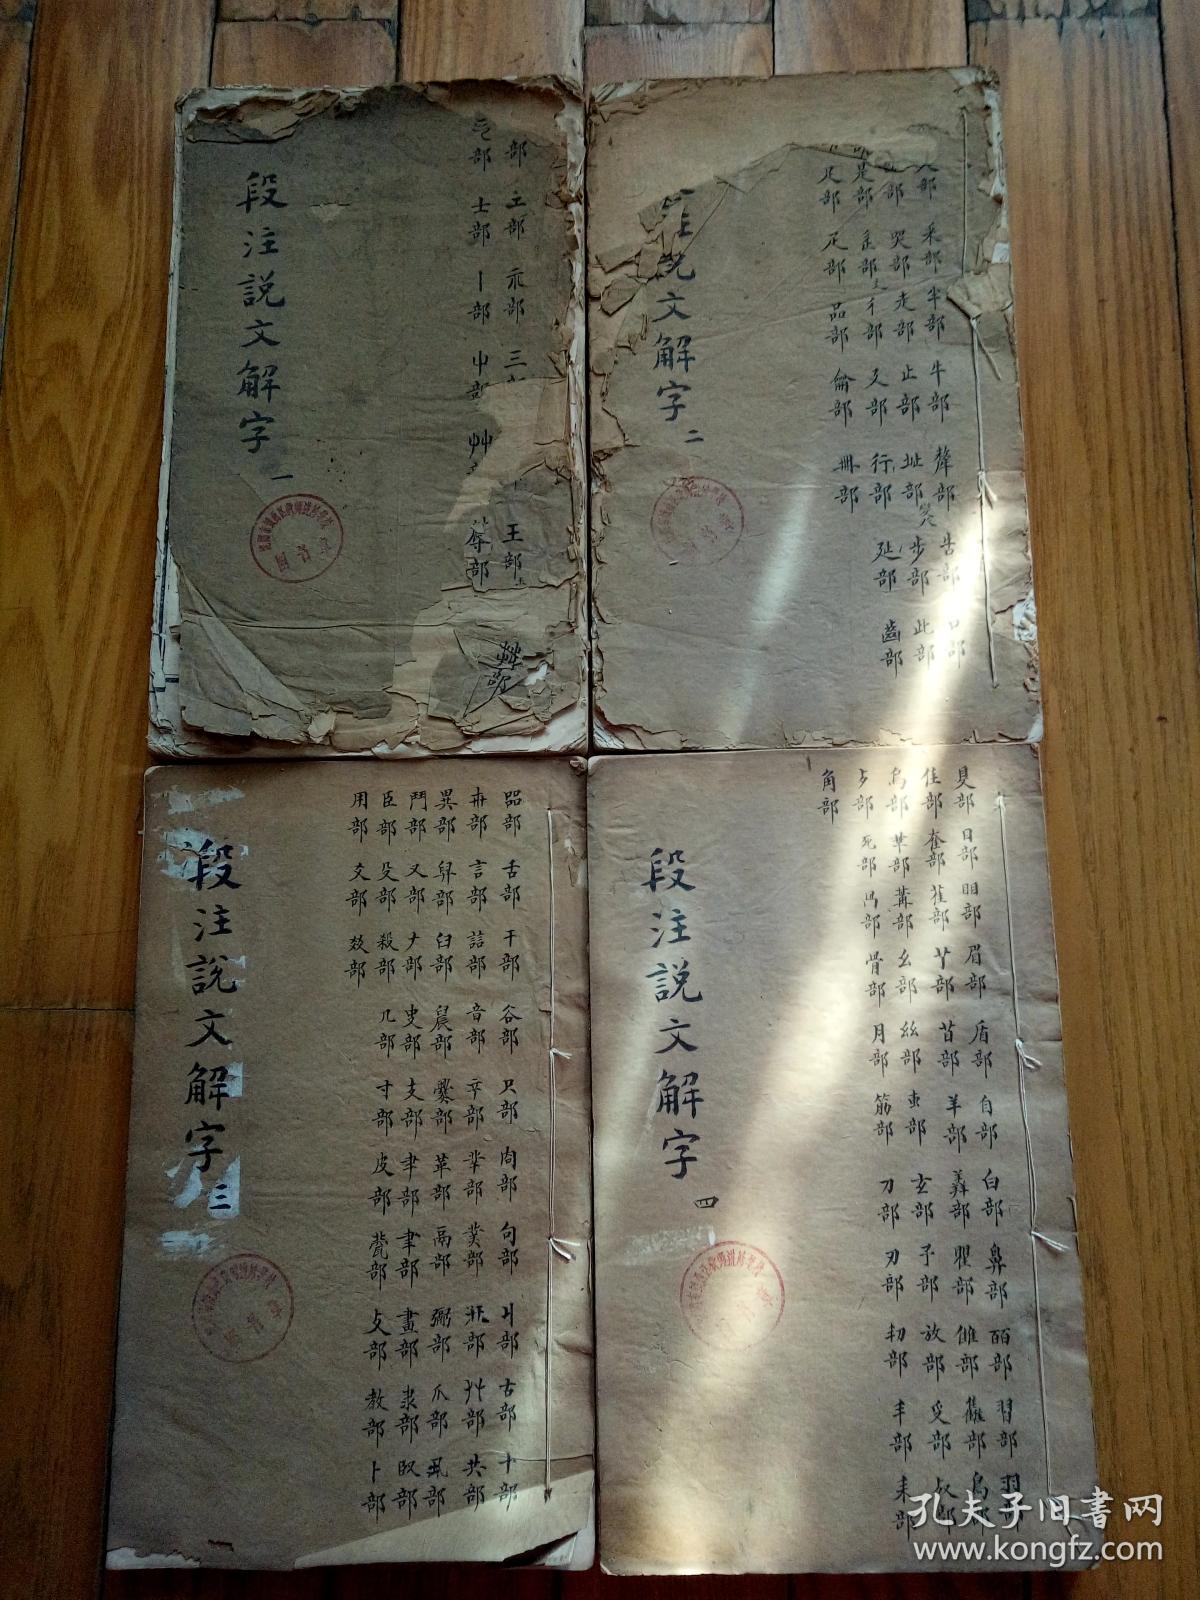 段注說文解字 一
部 王部 示部 三
王部
部 士部 丨部 中部 艸
蓐部
茻部
注說文解字 二
部 釆部 半部 牛部 犛部 告部 口部
部 哭部 走部 止部 址部 步部 此部
是部 辵部 彳部 廴部 行部 延部 齒部
足部 疋部 品部 龠部 冊部
段注說文解字 三
㗊部 舌部 干部 谷部 只部 㕯部 句部 丩部 古部 十部
卉部 言部 誩部 音部 䇂部 丵部 菐部 𠬜部 共部
異部 舁部 臼部 晨部 爨部 革部 鬲部 䰜部 爪部 丮部
鬥部 又部 𠂇部 史部 支部 聿部 聿部 畫部 隶部 臤部
臣部 殳部 殺部 几部 寸部 皮部 㼱部 攴部 教部 卜部
用部 爻部 㸚部
段注說文解字 四
㫑部 目部 䀠部 眉部 盾部 自部 白部 鼻部 皕部 習部 羽部
隹部 奞部 雈部 𦫳部 苜部 羊部 羴部 瞿部 雔部 雥部 鳥部
烏部 華部 冓部 幺部 𢆶部 叀部 玄部 予部 放部 𠬪部 𣦼部
歺部 死部 冎部 骨部 肉部 筋部 刀部 刃部 㓞部 丯部 耒部
角部
孔夫子旧书网
www.kongfz.com